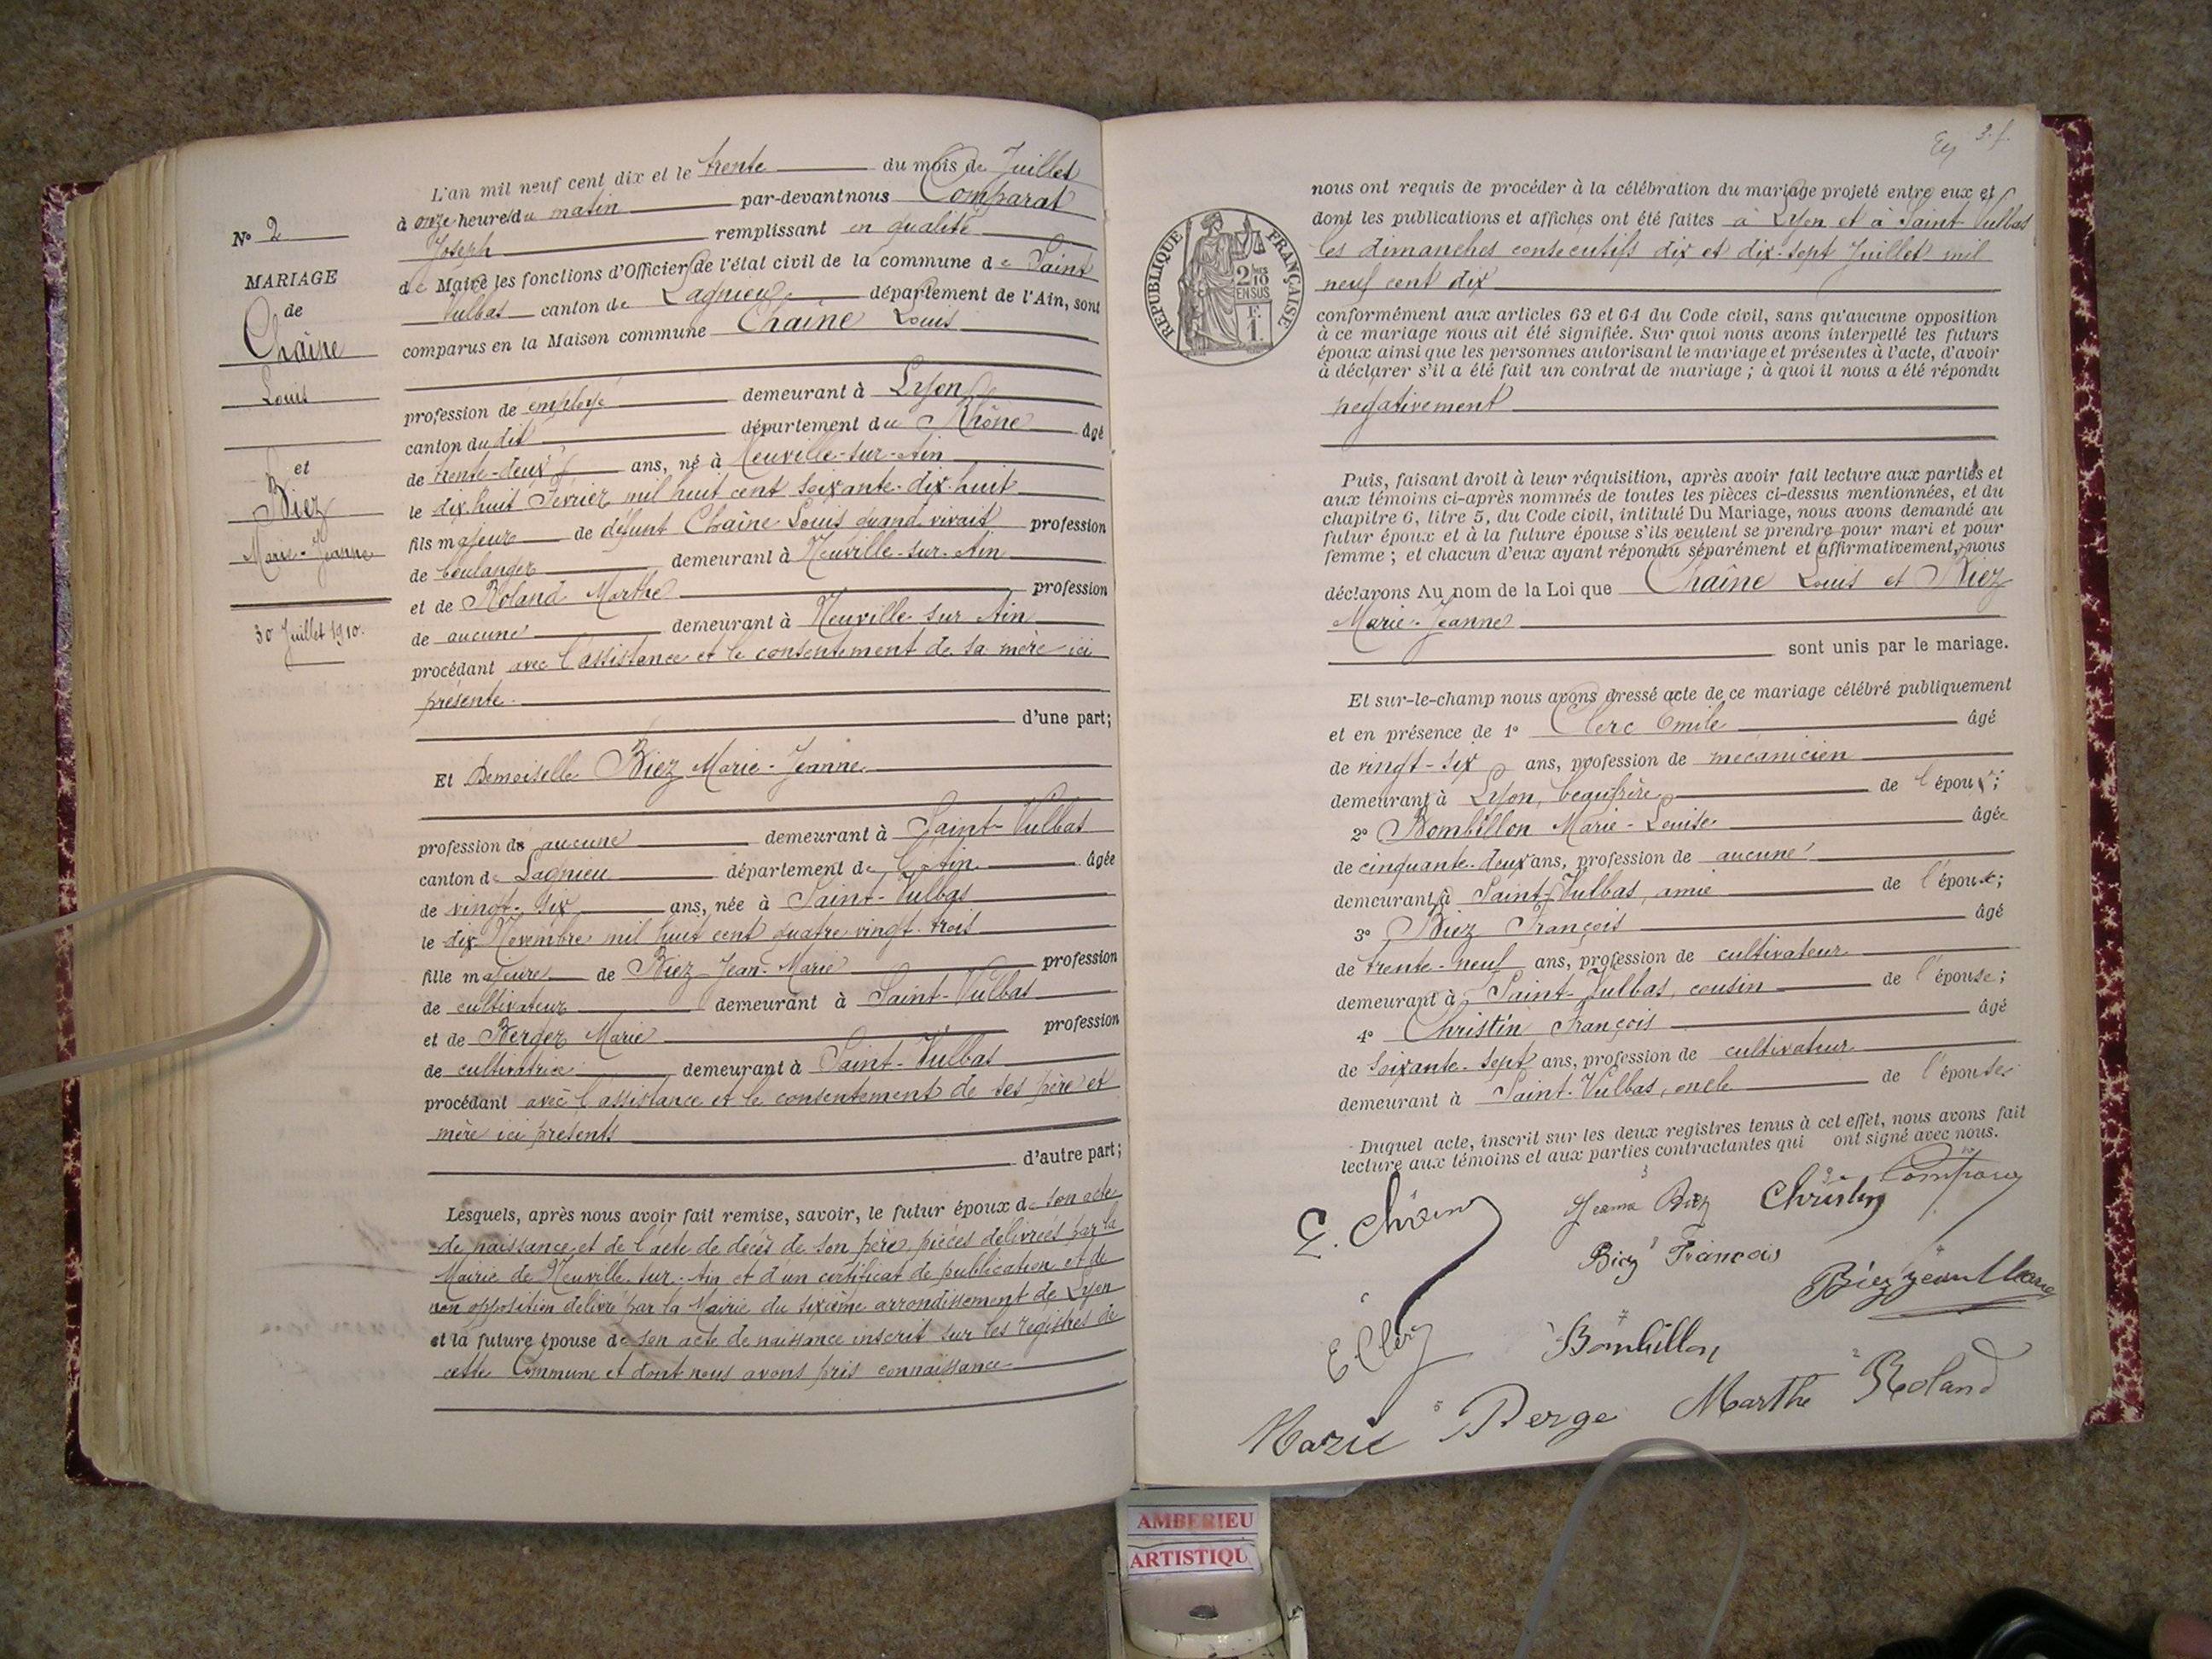 N° 2
MARIAGE
de
Chaîne
Louis
et
Biez
Marie-Jeanne
30 Juillet 1910.
L'an mil neuf cent dix et le trente du mois de Juillet
à onze heures du matin par-devant nous Comparat
Joseph remplissant en qualité
de Maire les fonctions d'Officier de l'état civil de la commune de Saint
Vulbas canton de Lagnieu département de l'Ain, sont
comparus en la Maison commune Chaîne Louis
profession de employé demeurant à Lyon
canton du dit département du Rhône âgé
de trente-deux ans, né à Neuville-sur-Ain
le dix huit Février mil huit cent soixante-dix-huit
fils majeur de défunt Chaîne Louis quand vivait profession
de boulanger demeurant à Neuville-sur-Ain
et de Roland Marthe profession
de aucune demeurant à Neuville-sur-Ain
procédant avec l'assistance et le consentement de sa mère ici
présente.
d'une part;
Et Demoiselle Biez Marie-Jeanne
profession de aucune demeurant à Saint-Vulbas
canton de Lagnieu département de l'Ain âgée
de vingt-six ans, née à Saint-Vulbas
le dix Novembre mil huit cent quatre vingt-trois
fille majeure de Biez Jean-Marie profession
de cultivateur demeurant à Saint-Vulbas
et de Berger Marie profession
de cultivatrice demeurant à Saint-Vulbas
procédant avec l'assistance et le consentement de ses père et
mère ici présents
d'autre part;
Lesquels, après nous avoir fait remise, savoir, le futur époux de son acte
de naissance et de l'acte de décès de son père, pièces délivrées par la
Mairie de Neuville-sur-Ain et d'un certificat de publication et de
non opposition délivré par la Mairie du sixième arrondissement de Lyon
et la future épouse de son acte de naissance inscrit sur les registres de
cette Commune et dont nous avons pris connaissance
nous ont requis de procéder à la célébration du mariage projeté entre eux et
dont les publications et affiches ont été faites à Lyon et à Saint-Vulbas
les dimanches consecutifs dix et dix-sept Juillet mil
neuf cent dix
RÉPUBLIQUE FRANÇAISE
2/10
EN SUS
1 F.
conformément aux articles 63 et 64 du Code civil, sans qu'aucune opposition
à ce mariage nous ait été signifiée. Sur quoi nous avons interpellé les futurs
époux ainsi que les personnes autorisant le mariage et présentes à l'acte, d'avoir
à déclarer s'il a été fait un contrat de mariage; à quoi il nous a été répondu
negativement
Puis, faisant droit à leur réquisition, après avoir fait lecture aux parties et
aux témoins ci-après nommés de toutes les pièces ci-dessus mentionnées, et du
chapitre 6, titre 5, du Code civil, intitulé Du Mariage, nous avons demandé au
futur époux et à la future épouse s'ils veulent se prendre pour mari et pour
femme; et chacun d'eux ayant répondu séparément et affirmativement, nous
déclarons Au nom de la Loi que Chaîne Louis et Biez
Marie-Jeanne
sont unis par le mariage.
Et sur-le-champ nous avons dressé acte de ce mariage célébré publiquement
et en présence de 1° Clerc Emile âgé
de vingt-six ans, profession de mécanicien
demeurant à Lyon, beaufrère de l'époux;
2° Bombillon Marie-Louise âgée
de cinquante-deux ans, profession de aucune
demeurant à Saint-Vulbas, amie de l'épouse;
3° Biez François âgé
de trente-neuf ans, profession de cultivateur
demeurant à Saint-Vulbas, cousin de l'épouse;
4° Christin François âgé
de soixante-sept ans, profession de cultivateur
demeurant à Saint-Vulbas, oncle de l'épouse
Duquel acte, inscrit sur les deux registres tenus à cet effet, nous avons fait
lecture aux témoins et aux parties contractantes qui ont signé avec nous.
Jeanne Biez Christin
Biez François
Biez Jean Marie
E. Clerc Bombillon
Marie Berge Marthe Roland
AMBERIEU
ARTISTIQU